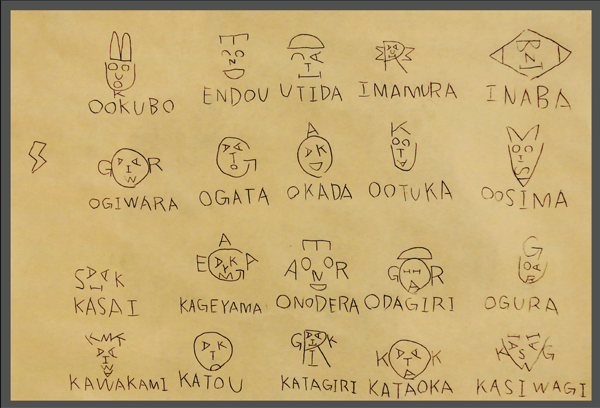 OOKUBO ENDOU UTIDA IMAMURA INABA
OGIWARA OGATA OKADA OOTUKA OOSIMA
KASAI KAGEYAMA ONODERA ODAGIRI OGURA
KAWAKAMI KATOU KATAGIRI KATAOKA KASIWAGI